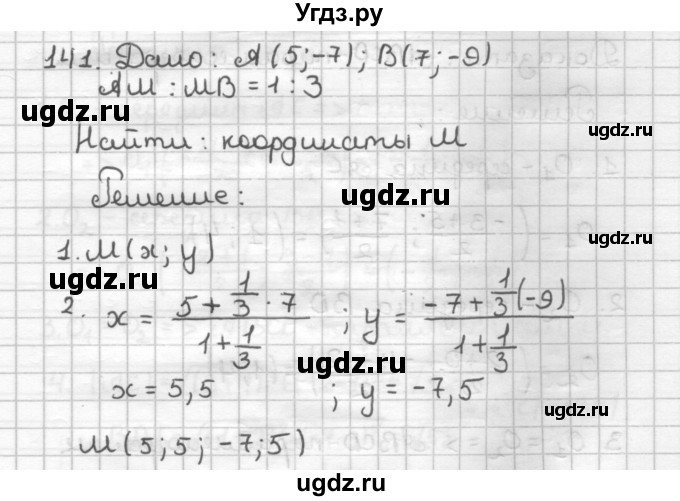 Угдз.ру
141. Дано: A(5;-7); B(7;-9)
AM : MB = 1 : 3
ugdz.ru ugdz.ru
Найти: координаты M
Решение:
ugdz.ru
1. M(x; y)
ugdz.ru
2. x = (5 + 1/3 · 7) / (1 + 1/3) ; y = (-7 + 1/3 (-9)) / (1 + 1/3)
ugdz.ru
x = 5,5 ; y = -7,5
ugdz.ru
M(5;5; -7;5)
ugdz.ru
ugdz.ru